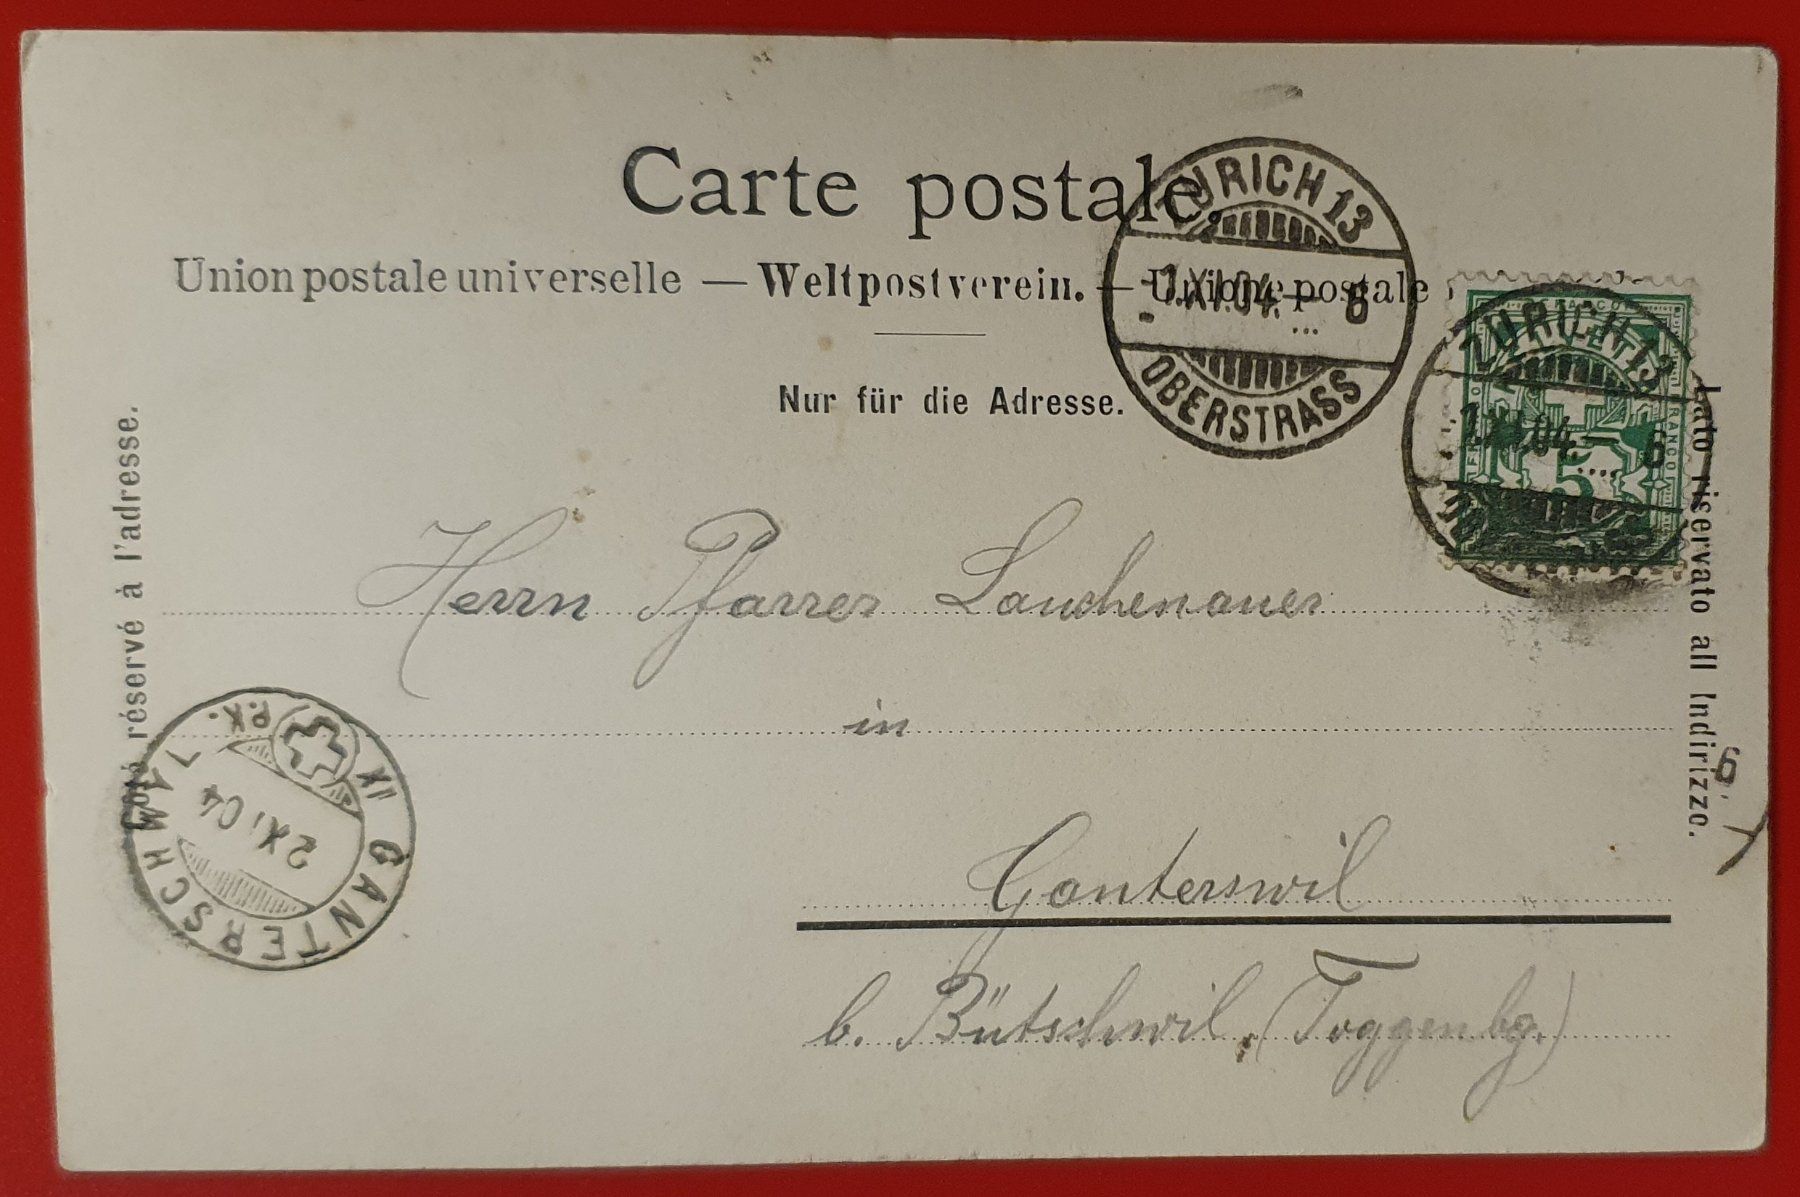 Carte postale.
Union postale universelle — Weltpostverein. — Unione postale
Nur für die Adresse.
Côté réservé à l'adresse.
Lato riservato all Indirizzo.
ZÜRICH 13
1.XI.04.— 6
OBERSTRASS
ZÜRICH 13
1.XI.04.— 6
FRANCO
5
Herrn Pfarrer Lauchenauer
in
Ganterswil
b. Bütschwil, (Toggenbg.)
GANTERSCHWYL
2 XI 04
XII
P.K.
6.